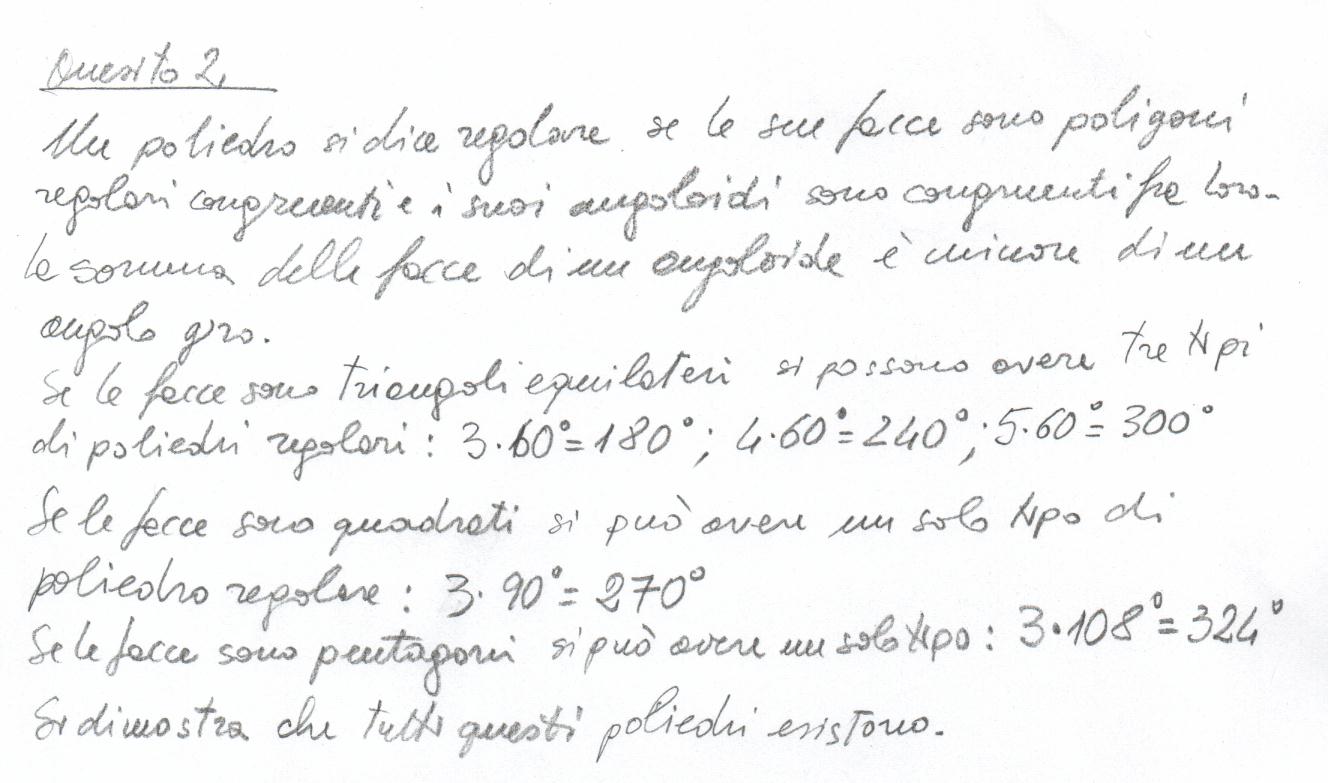 Quesito 2.
Un poliedro si dice regolare se le sue facce sono poligoni
regolari congruenti e i suoi angoloidi sono congruenti fra loro.
La somma delle facce di un angoloide è minore di un
angolo giro.
Se le facce sono triangoli equilateri si possono avere tre tipi
di poliedri regolari: 3·60°=180°; 4·60°=240°; 5·60°=300°
Se le facce sono quadrati si può avere un solo tipo di
poliedro regolare: 3·90°=270°
Se le facce sono pentagoni si può avere un solo tipo: 3·108°=324°
Si dimostra che tutti questi poliedri esistono.